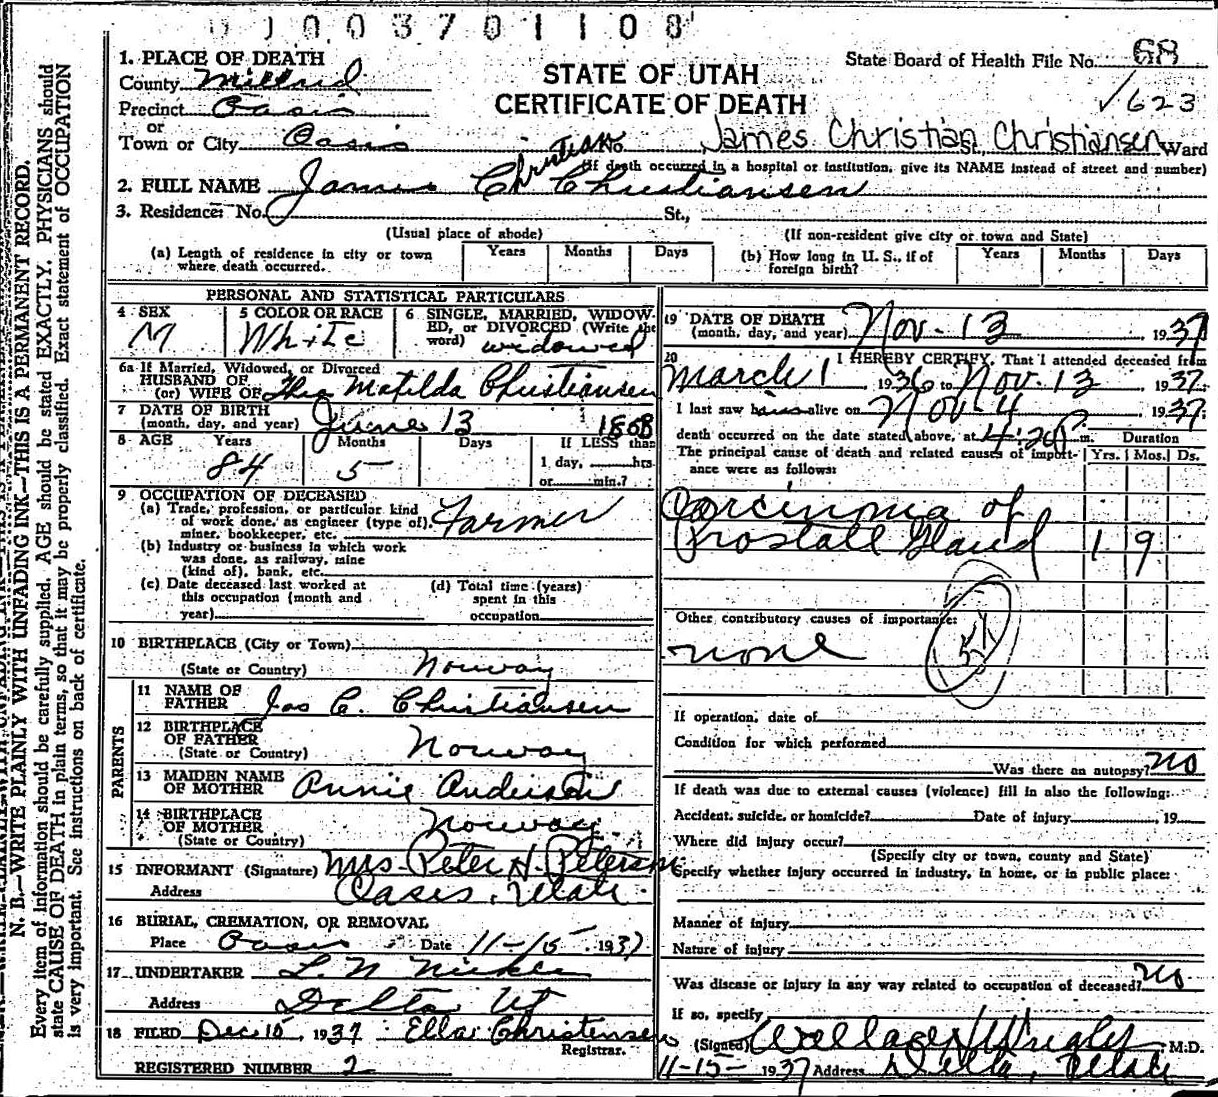 01003701108
1. PLACE OF DEATH
County Millard
Precinct Oasis
or
Town or City Oasis
STATE OF UTAH
CERTIFICATE OF DEATH
State Board of Health File No. 68
✓623
James Christian Christiansen Ward
(If death occurred in a hospital or institution, give its NAME instead of street and number)
Christian
2. FULL NAME James C Christiansen
3. Residence: No. St.,
(Usual place of abode) (If non-resident give city or town and State)
(a) Length of residence in city or town where death occurred. Years Months Days
(b) How long in U. S., if of foreign birth? Years Months Days
PERSONAL AND STATISTICAL PARTICULARS
4 SEX M
5 COLOR OR RACE White
6 SINGLE, MARRIED, WIDOWED, or DIVORCED (Write the word) widowed
6a If Married, Widowed, or Divorced
HUSBAND OF
(or) WIFE OF Matilda Christiansen
7 DATE OF BIRTH
(month, day, and year) June 13
8 AGE Years Months Days If LESS than
84 5 1 day, hrs.
or min.?
9 OCCUPATION OF DECEASED
(a) Trade, profession, or particular kind
of work done, as engineer (type of), Farmer
miner, bookkeeper, etc.
(b) Industry or business in which work
was done, as railway, mine
(kind of), bank, etc.
(c) Date deceased last worked at
this occupation (month and
year)
(d) Total time (years)
spent in this
occupation
10 BIRTHPLACE (City or Town)
(State or Country) Norway
PARENTS
11 NAME OF
FATHER Jas C. Christiansen
12 BIRTHPLACE
OF FATHER
(State or Country) Norway
13 MAIDEN NAME
OF MOTHER Annie Anderson
14 BIRTHPLACE
OF MOTHER
(State or Country) Norway
15 INFORMANT (Signature) Mrs. Peter H. Peterson
Address Oasis, Utah
16 BURIAL, CREMATION, OR REMOVAL
Place Oasis Date 11-15 1937
17 UNDERTAKER L. N.
Address Delta Ut
18 FILED Dec 15, 1937 Ella Christensen
Registrar.
REGISTERED NUMBER 2
19 DATE OF DEATH
(month, day, and year) Nov-13 1937
20 I HEREBY CERTIFY, That I attended deceased from
March 1 1936 to Nov. 13 1937
I last saw him alive on Nov-4 1937
death occurred on the date stated above, at 4:20 P m. Duration
The principal cause of death and related causes of importance were as follows: Yrs. Mos. Ds.
Carcinoma of
Prostate Gland 1 9
Other contributory causes of importance:
none
51
If operation, date of
Condition for which performed
Was there an autopsy? no
If death was due to external causes (violence) fill in also the following:
Accident, suicide, or homicide? Date of injury 19
Where did injury occur?
(Specify city or town, county and State)
Specify whether injury occurred in industry, in home, or in public place:
Manner of injury
Nature of injury
Was disease or injury in any way related to occupation of deceased? no
If so, specify
(Signed) M.D.
11-15- 1937 Address Delta, Utah
N. B.—WRITE PLAINLY WITH UNFADING INK—THIS IS A PERMANENT RECORD.
Every item of information should be carefully supplied. AGE should be stated EXACTLY. PHYSICIANS should
state CAUSE OF DEATH in plain terms, so that it may be properly classified. Exact statement of OCCUPATION
is very important. See instructions on back of certificate.